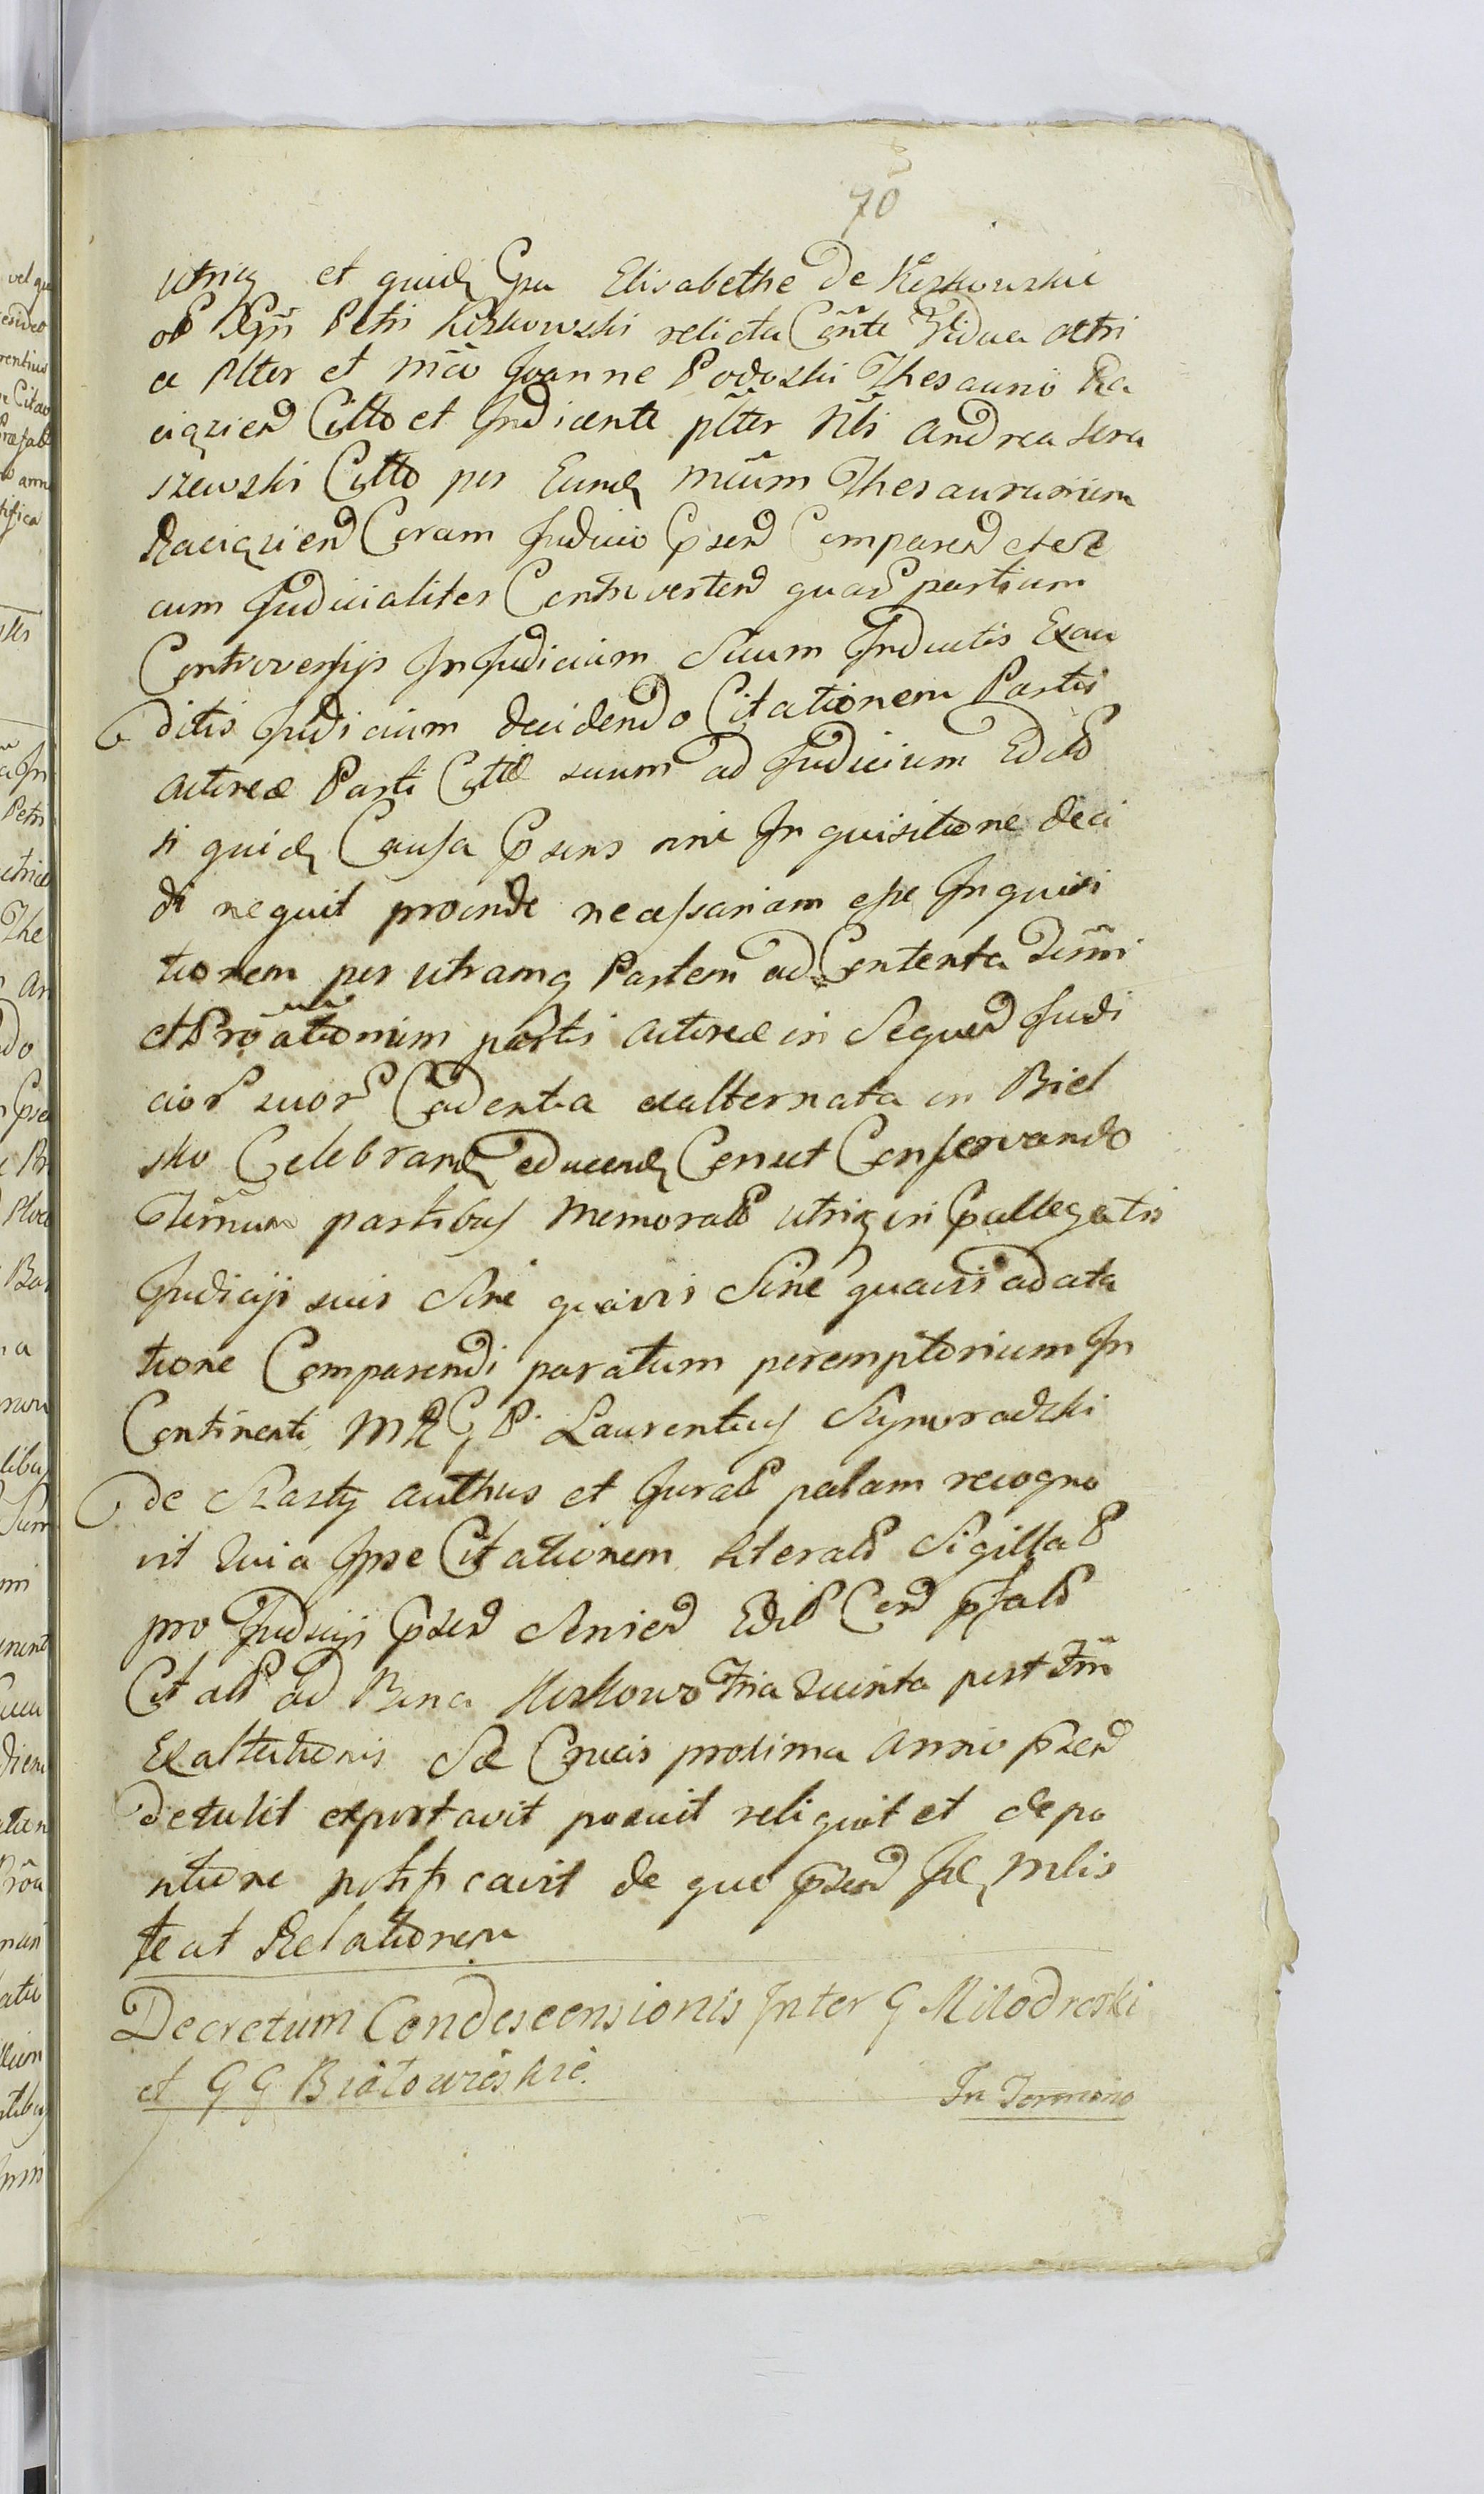 70
utriq et quidq Gsa Elisabethe de Kęszkowskie
olb Ggñ Petri Kiszkowski relicta Cõnte Vidua actri
ce Alter et mco Joanne Podoski Thesauriô Ra
ciązien Citto et Indicente plter Nbi Andrea Sera
szewski Citto per Eundq mcum Thesaurarium
Raciązien Coram Judicio Psen Comparen et se
cum Judicialiter Controverten quar partium
Controversijs In Judicium Suum Inductis Exau
ditis Judicium decidendo Citationem Partis
Actoreæ Parti Cittæ suum ad Judicium Edit
si quidq Causa Psens sine Inquisitione deci
di nequit proinde necessariam esse Inquisi
tionem per utramq Partem ad Contenta Temni
et Proationum partis Actoreæ in Sequen Judi
cior suor Cadentia exalternata in Biel
sko Celebrandq educendq Censet Conservando
Termnum partibus Memorat utriq in Pallegatis
Judicijs suis Sine quavis Sine quavis adcita
tione Comparendi paratum peremptorium In
Continenti MRGP Laurentius Szymoradzki
de Szasty authus et Jurat palam recogno
vit Quia Ipse Citationem Literat Sigillat
pro Judicijs Psen Servien Edit Cen pfat
Citat ad Bona Kiszkowo Fria Quinta post Fm
Exaltationis Sæ Crucis proxima Anno Psen
detulit exportavit posuit reliquit et de po
sitione notificavit de quo Psen Idq Mlis
fecit Relationem
Decretum Condescensionis Inter G Milodroski
et GG Białowieskie.
In Termino